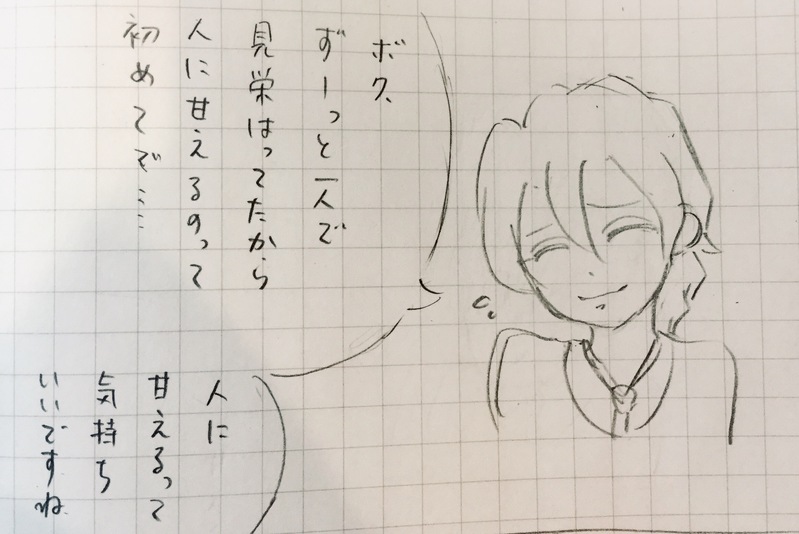 ボク、
ずーっと一人で
見栄はってたから
人に甘えるのって
初めてで……
人に
甘えるって
気持ち
いいですね